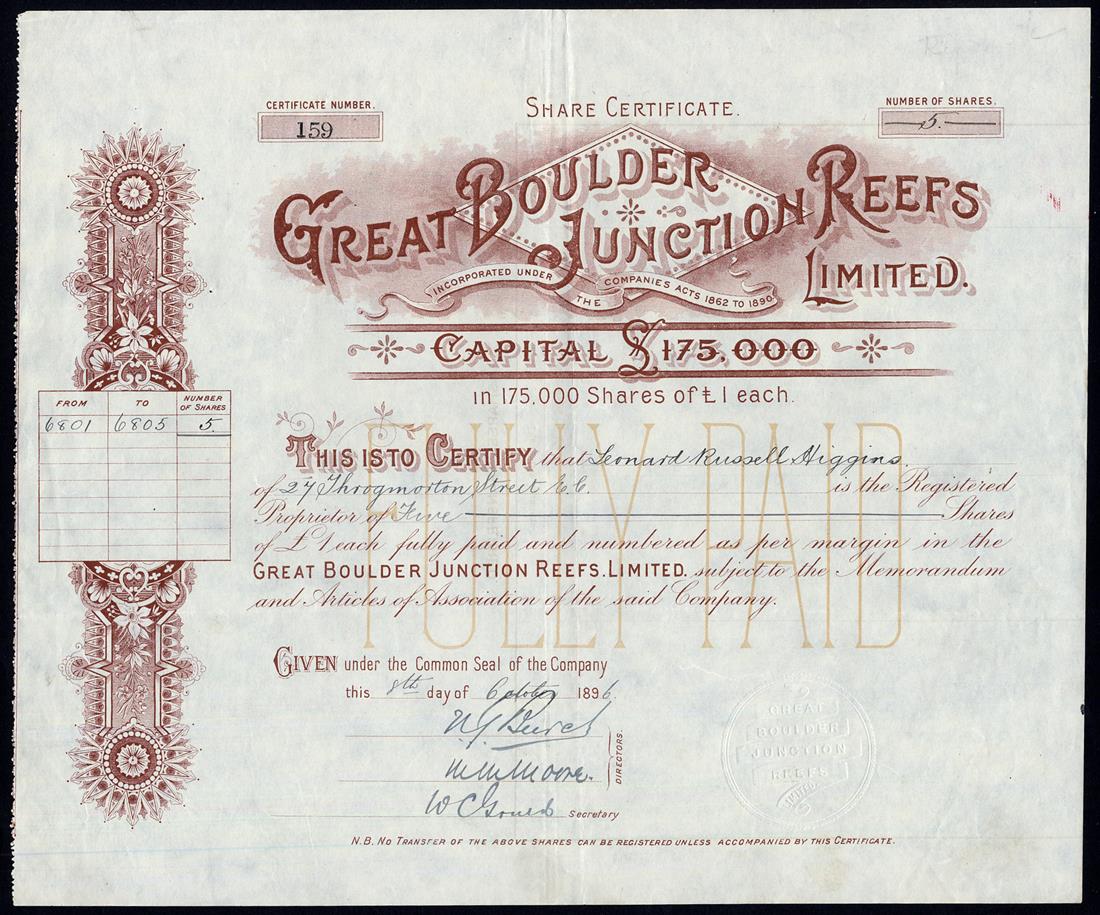 SHARE CERTIFICATE.
CERTIFICATE NUMBER.
159
NUMBER OF SHARES.
5.
GREAT BOULDER JUNCTION REEFS
LIMITED.
INCORPORATED UNDER THE COMPANIES ACTS 1862 TO 1890
CAPITAL £175,000
in 175,000 Shares of £1 each.
FROM TO NUMBER OF SHARES
6801 6805 5.
FULLY PAID
THIS IS TO CERTIFY that Leonard Russell Higgins
of 27 Throgmorton Street E.C. is the Registered
Proprietor of Five Shares
of £1 each fully paid and numbered as per margin in the
GREAT BOULDER JUNCTION REEFS. LIMITED, subject to the Memorandum
and Articles of Association of the said Company.
GIVEN under the Common Seal of the Company
this 8th day of October 1896.
DIRECTORS.
M M Moore.
W C Gould Secretary
GREAT
BOULDER
JUNCTION
REEFS
LIMITED
N.B. NO TRANSFER OF THE ABOVE SHARES CAN BE REGISTERED UNLESS ACCOMPANIED BY THIS CERTIFICATE.